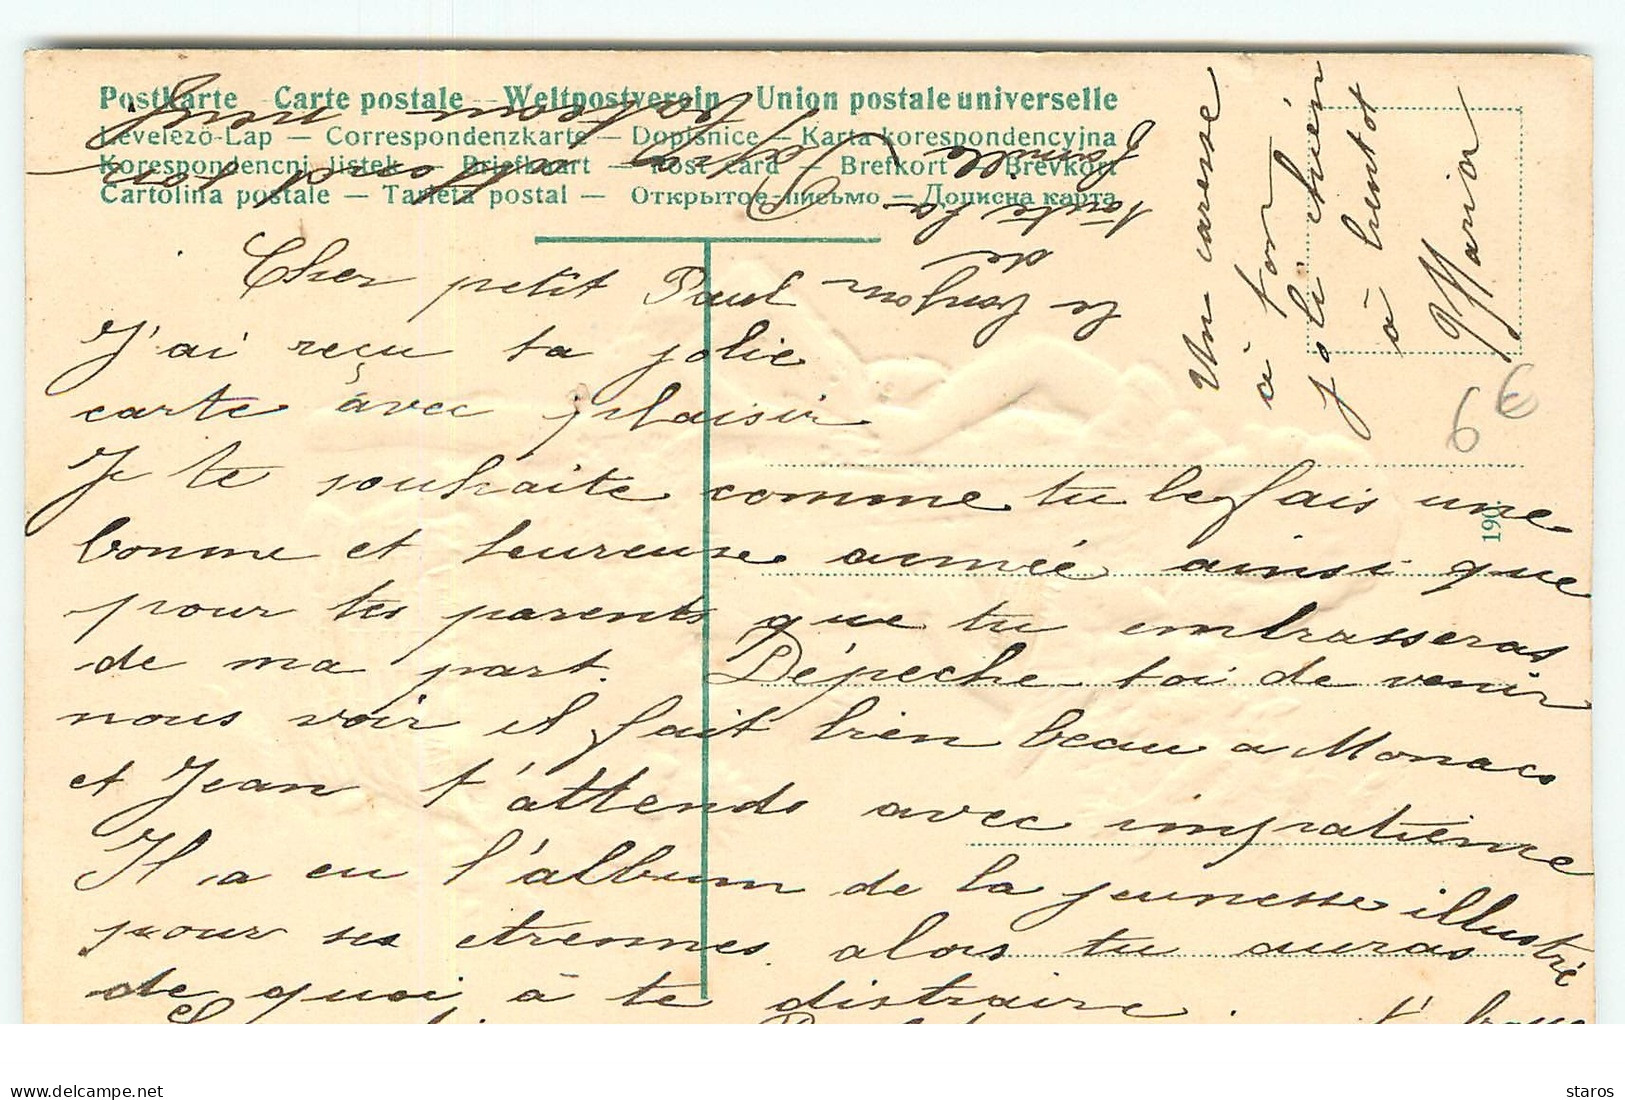 Postkarte — Carte postale — Weltpostverein — Union postale universelle
Levelezö-Lap — Correspondenzkarte — Dopisnice — Karta korespondencyjna
Korespondencni listek — Briefkaart — Post card — Brefkort — Brevkort
Cartolina postale — Tarjeta postal — Открытое письмо — Дописна карта
Cher petit Paul
J'ai reçu ta jolie
carte avec plaisir
Je te souhaite comme tu le fais une
bonne et heureuse année ainsi que
pour tes parents que tu embrasseras
de ma part. Dépêche-toi de venir
nous voir il fait bien beau a Monaco
et Jean t'attends avec impatience
Il a eu l'album de la jeunesse illustré
pour ses etrennes alors tu auras
de quoi à te distraire.
le bonjour
de
toute la
famille
Un caresse
à ton
joli chien
à bientot
Maria
190
6 €
delcampe.net
staros